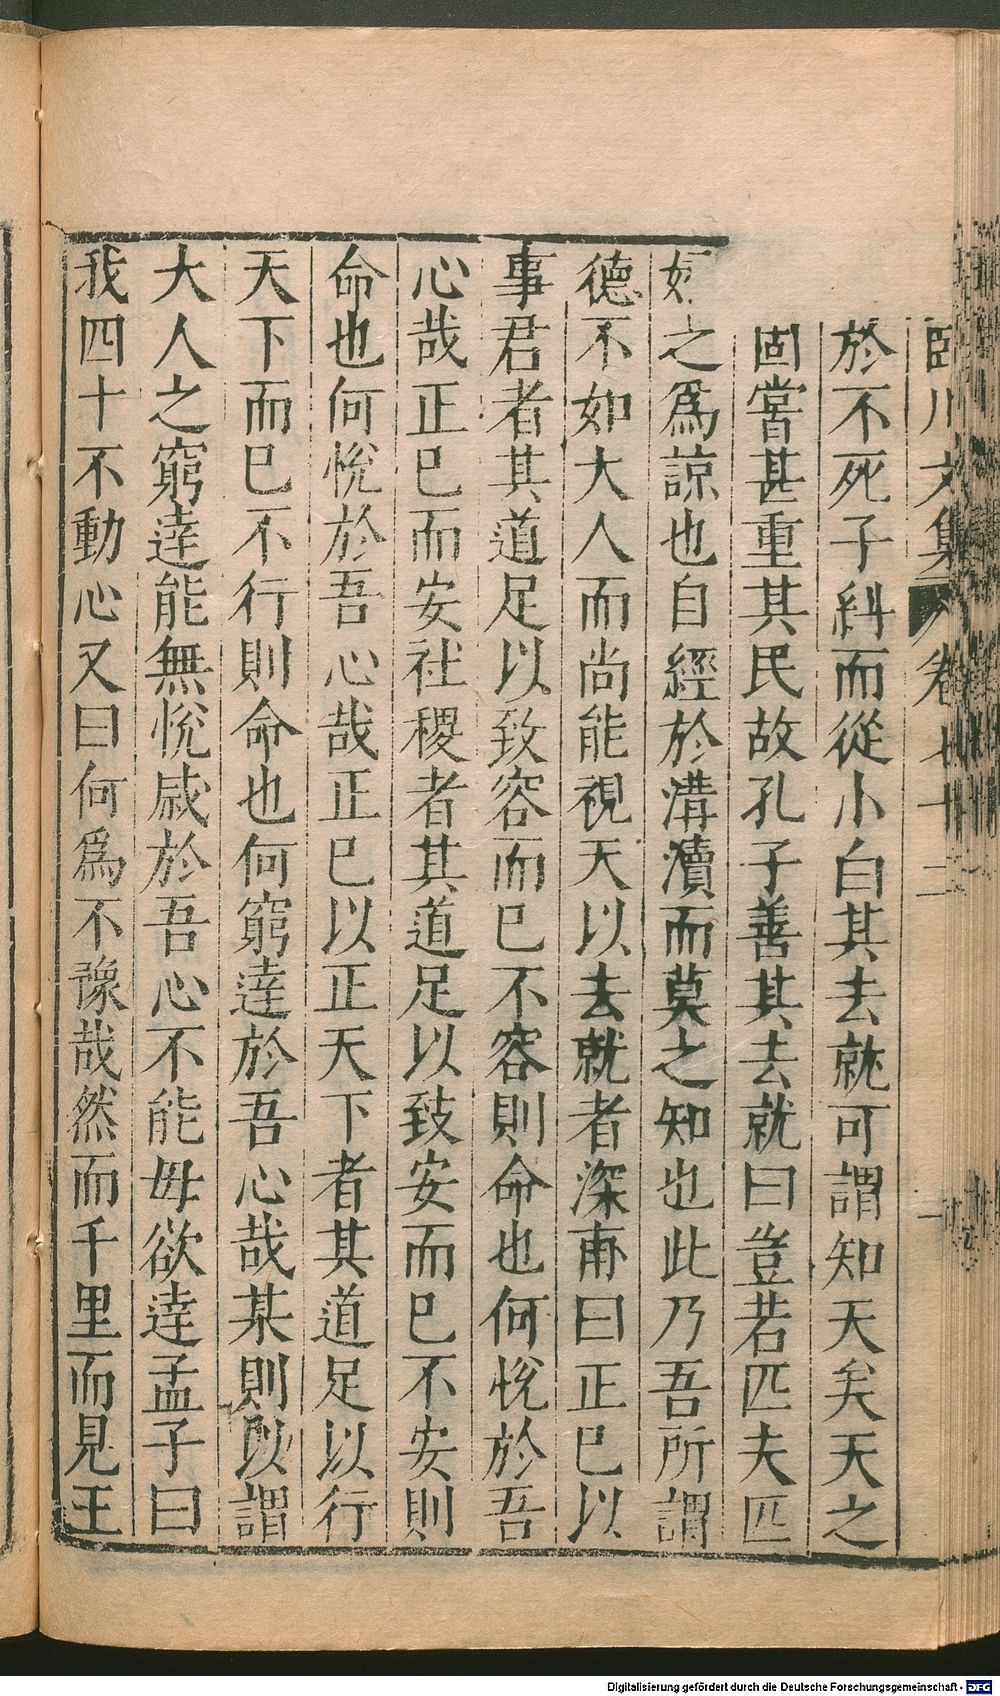 臨川文集 卷七十二
於不死子糾而從小白其去就可謂知天矣天之
固嘗甚重其民故孔子善其去就曰豈若匹夫匹
之爲諒也自經於溝瀆而莫之知也此乃吾所謂
德不如大人而尚能視天以去就者深甫曰正已以
事君者其道足以致容而已不容則命也何悅於吾
心哉正已而安社稷者其道足以致安而已不安則
命也何悅於吾心哉正已以正天下者其道足以行
天下而已不行則命也何窮達於吾心哉某則以謂
大人之窮達能無悅戚於吾心不能毋欲達孟子曰
我四十不動心又曰何爲不豫哉然而千里而見王
Digitalisierung gefördert durch die Deutsche Forschungsgemeinschaft - DFG